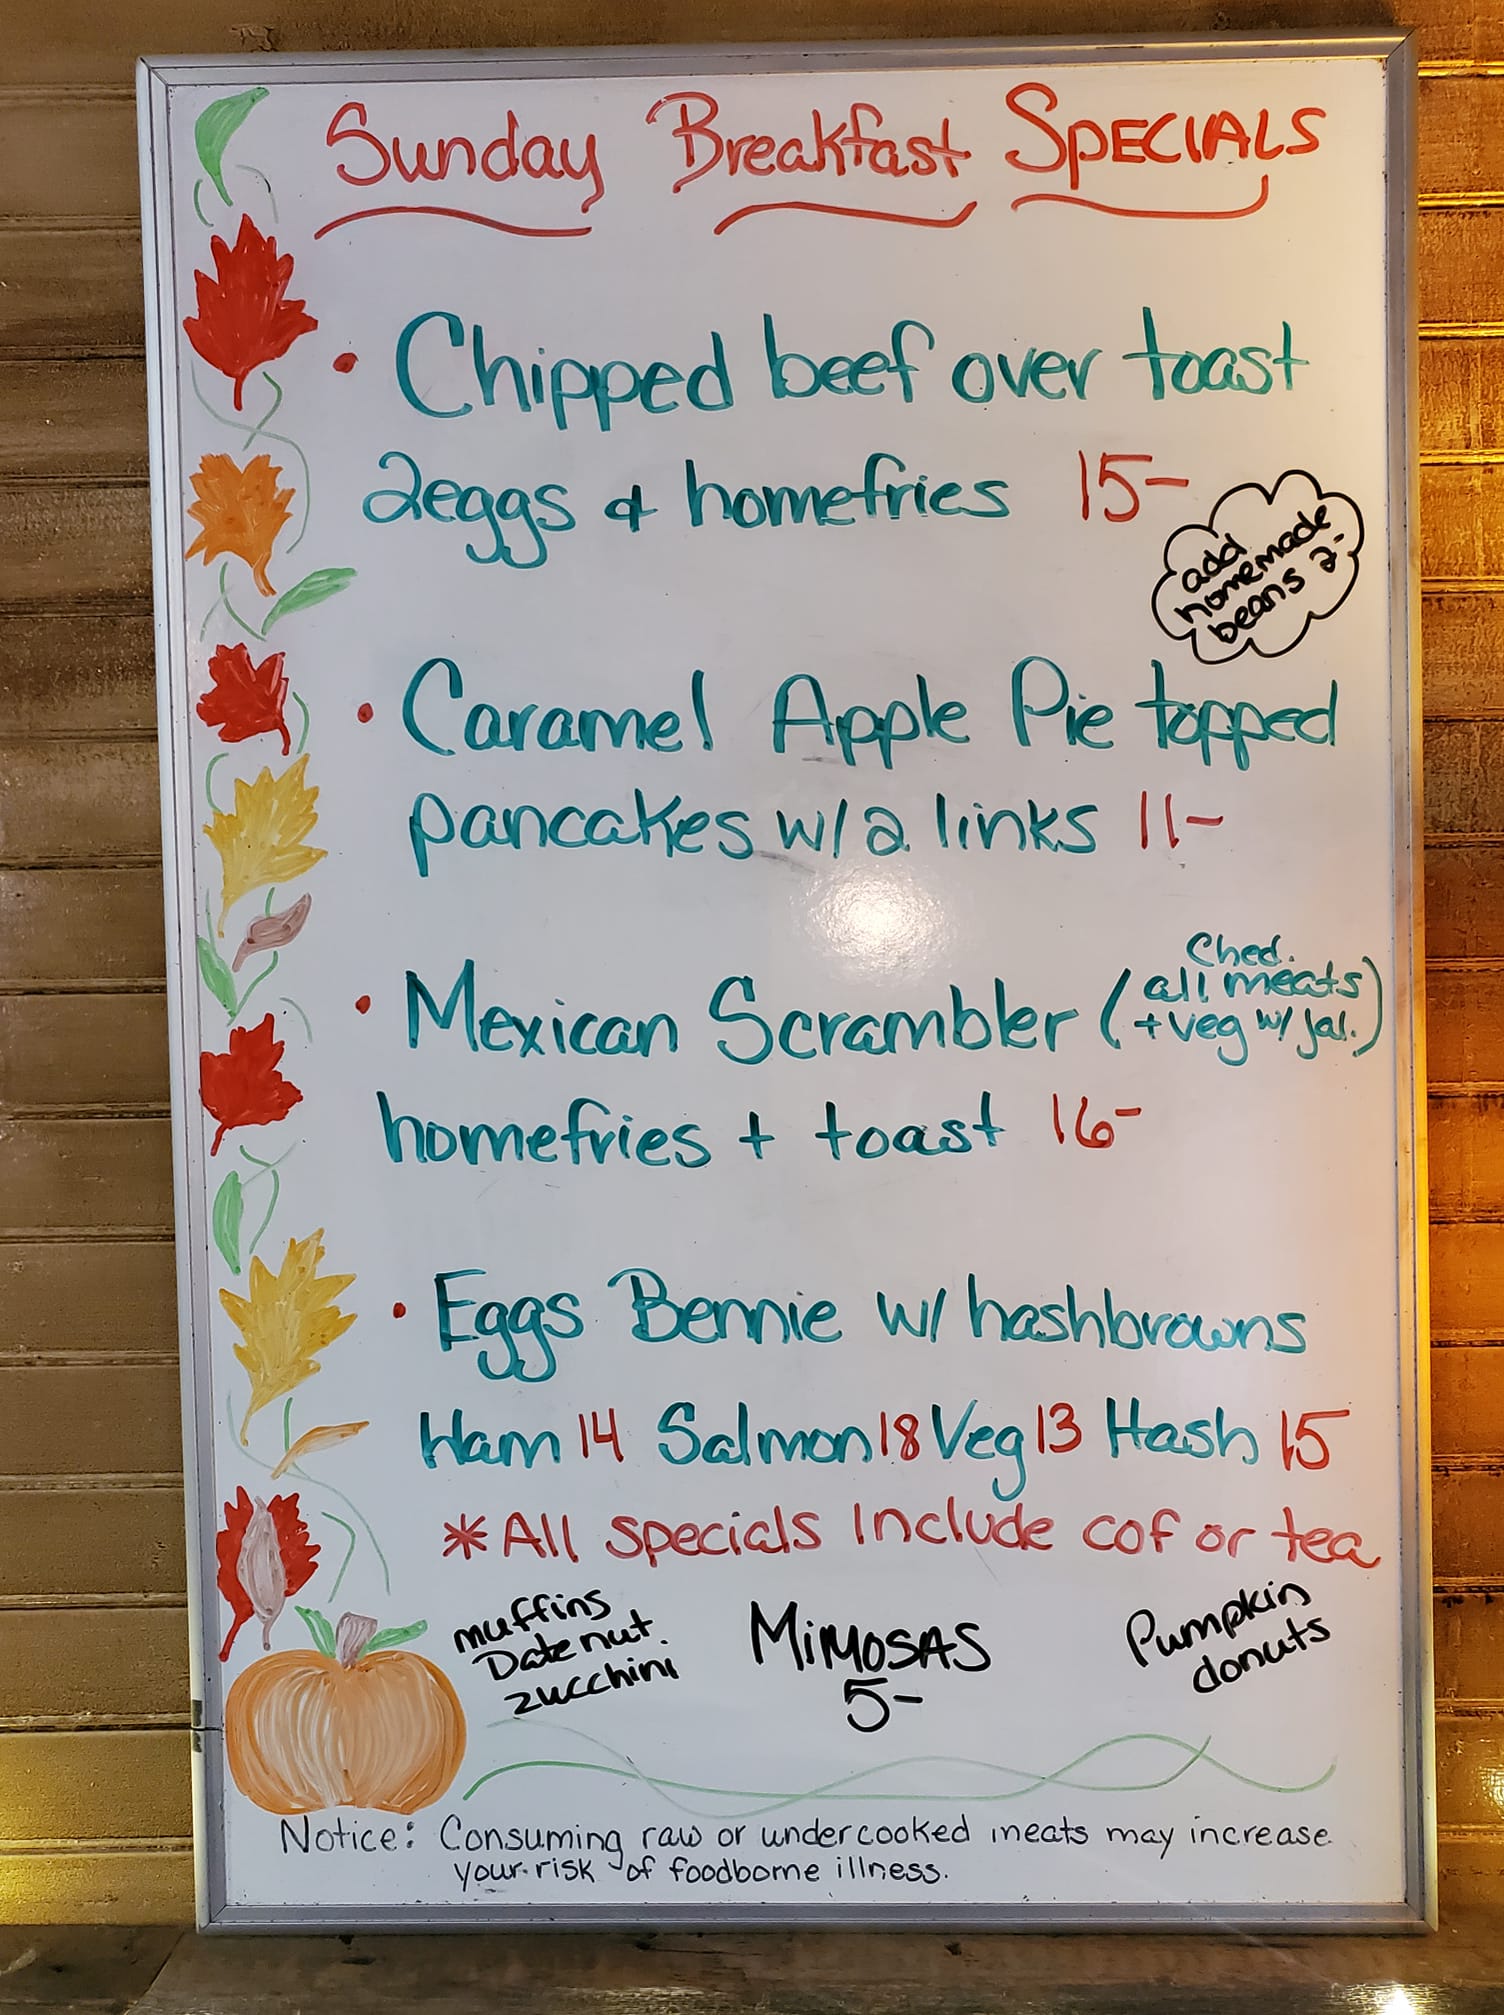 Sunday Breakfast SPECIALS
• Chipped beef over toast
2eggs & homefries 15-
add
homemade
beans 2-
• Caramel Apple Pie topped
pancakes w/2 links 11-
• Mexican Scrambler (Ched. all meats + veg w/ jal.)
homefries + toast 16-
• Eggs Bennie w/ hashbrowns
Ham 14 Salmon 18 Veg 13 Hash 15
*All specials Include cof or tea
muffins
Date nut.
zucchini
MiMOSAS
5-
Pumpkin
donuts
Notice: Consuming raw or undercooked meats may increase
your risk of foodborne illness.